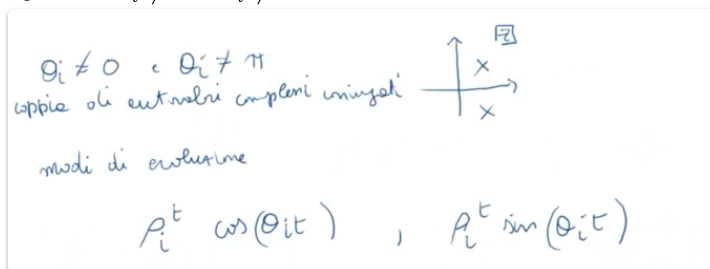 θi ≠ 0 e θi ≠ π
coppia di autovalori complessi coniugati
z
modi di evoluzione
ρi^t cos(θi t) , ρi^t sin(θi t)